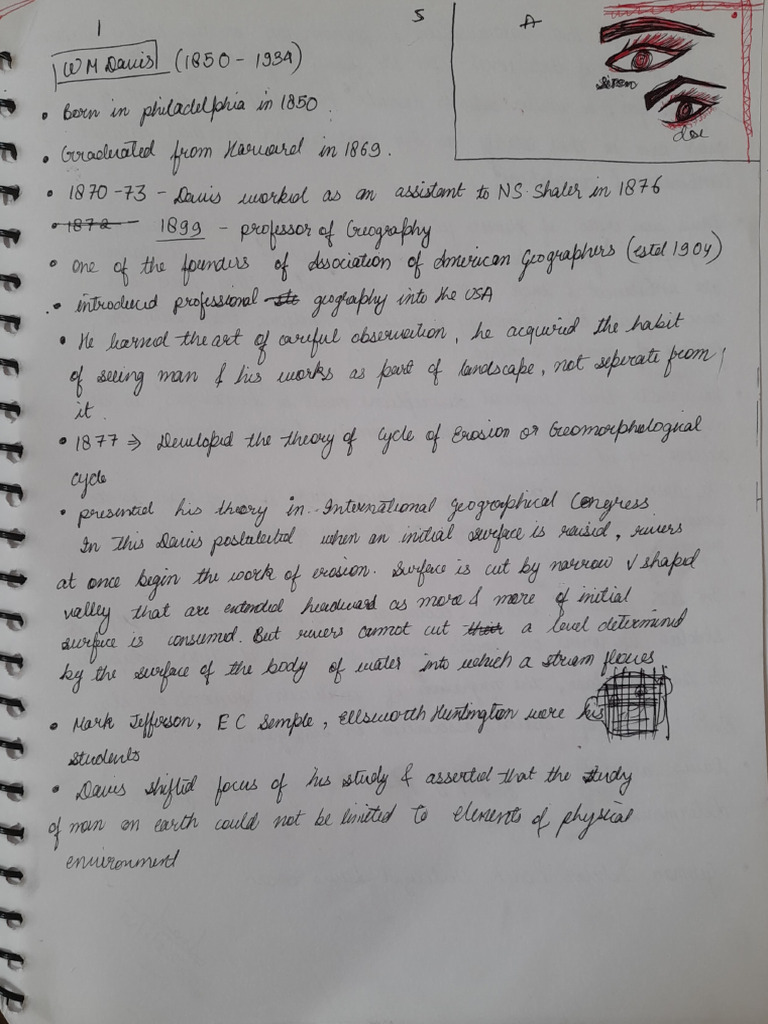 1
S
A
W M Davis (1850 - 1934)
siren
doe
• Born in philadelphia in 1850.
• Graduated from Harvard in 1869.
• 1870-73 - Davis worked as an assistant to NS. Shaler in 1876
• 1872 1899 - professor of Geography
• one of the founders of Association of American Geographers (estd 1904)
• introduced professional geography into the USA
• He learned the art of careful observation, he acquired the habit
of seeing man & his works as part of landscape, not seperate from
it.
• 1877 ⇒ Developed the theory of cycle of Erosion or Geomorphological
cycle
• presented his theory in International Geographical Congress
In this Davis postulated when an initial surface is raised, rivers
at once begin the work of erosion. Surface is cut by narrow V shaped
valley that are extended headward as more & more of initial
surface is consumed. But rivers cannot cut a level determined
by the surface of the body of water into which a stream flows
• Mark Jefferson, E C Semple, Ellsworth Huntington were his
students
• Davis shifted focus of his study & asserted that the study
of man on earth could not be limited to elements of physical
environment